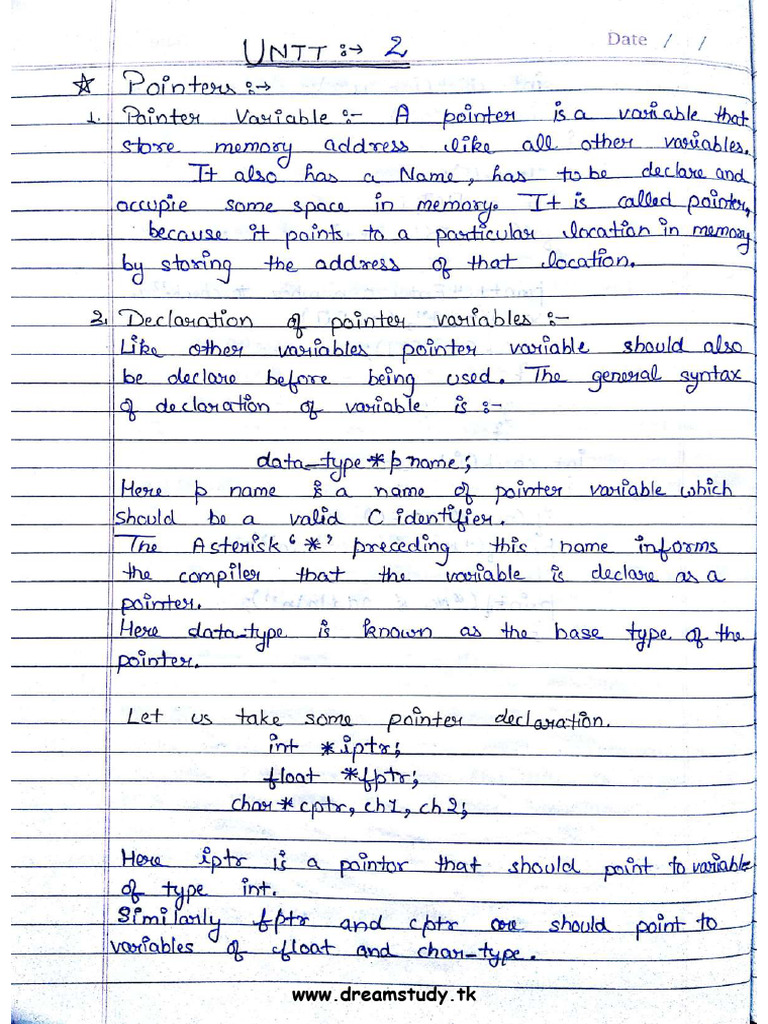 Date / /
UNIT :→ 2
☆ Pointers :→
1. Pointer Variable :- A pointer is a variable that
store memory address like all other variables.
It also has a Name, has to be declare and
occupie some space in memory. It is called pointer,
because it points to a particular location in memory
by storing the address of that location.
2. Declaration of pointer variables :-
Like other variables pointer variable should also
be declare before being used. The general syntax
of declaration of variable is :-
data_type * p name;
Here p name is a name of pointer variable which
should be a valid C identifier.
The Asterisk '*' preceding this name informs
the compiler that the variable is declare as a
pointer.
Here data_type is known as the base type of the
pointer.
Let us take some pointer declaration.
int *iptr;
float *fptr;
char * cptr, ch1, ch2;
Here iptr is a pointor that should point to variable
of type int.
Similarly fptr and cptr are should point to
variables of float and char-type.
www.dreamstudy.tk